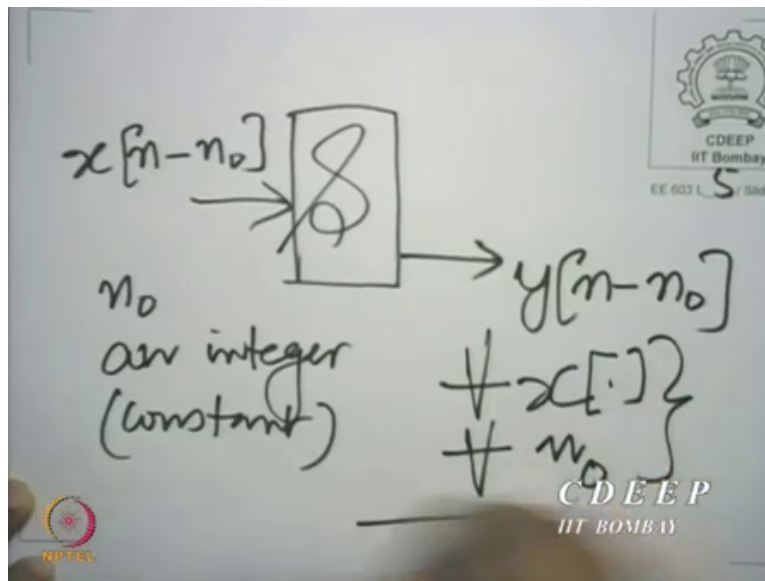 CDEEP
IIT Bombay
EE 603 L 5 / Slid
x[n-n₀]
S
y[n-n₀]
n₀
an integer
(constant)
∀ x[·] }
∀ n₀
CDEEP
IIT BOMBAY
NPTEL